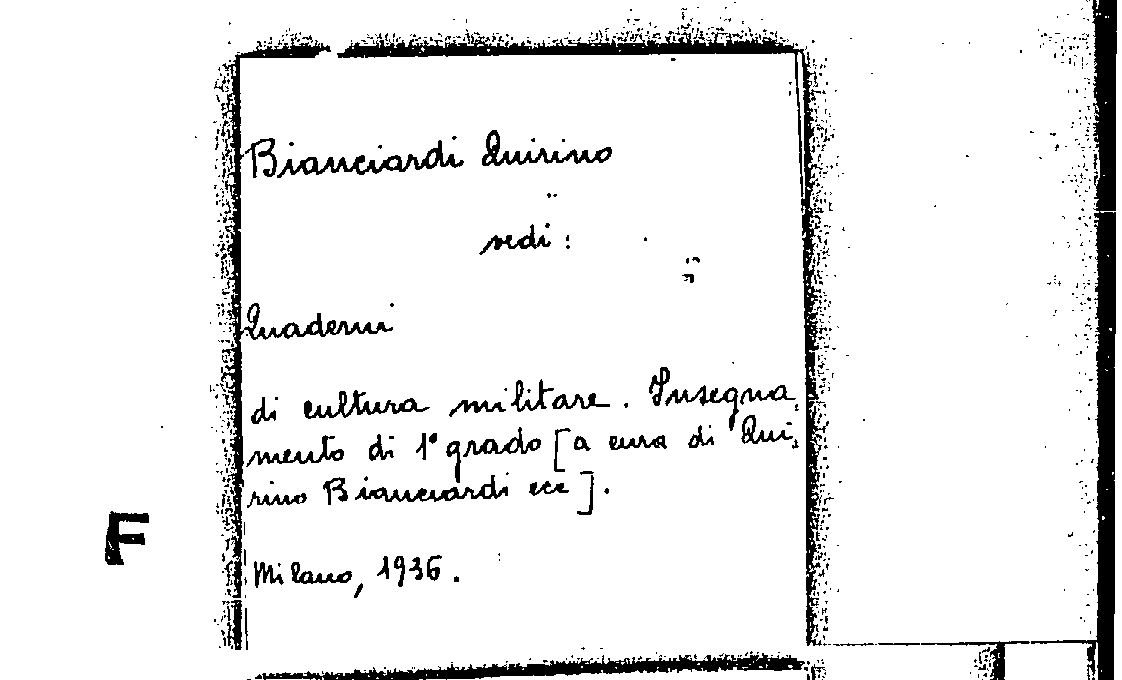 Bianciardi Quirino
vedi :
Quaderni
di cultura militare. Insegna
mento di 1° grado [a cura di Qui
rino Bianciardi ecc].
F
Milano, 1936.